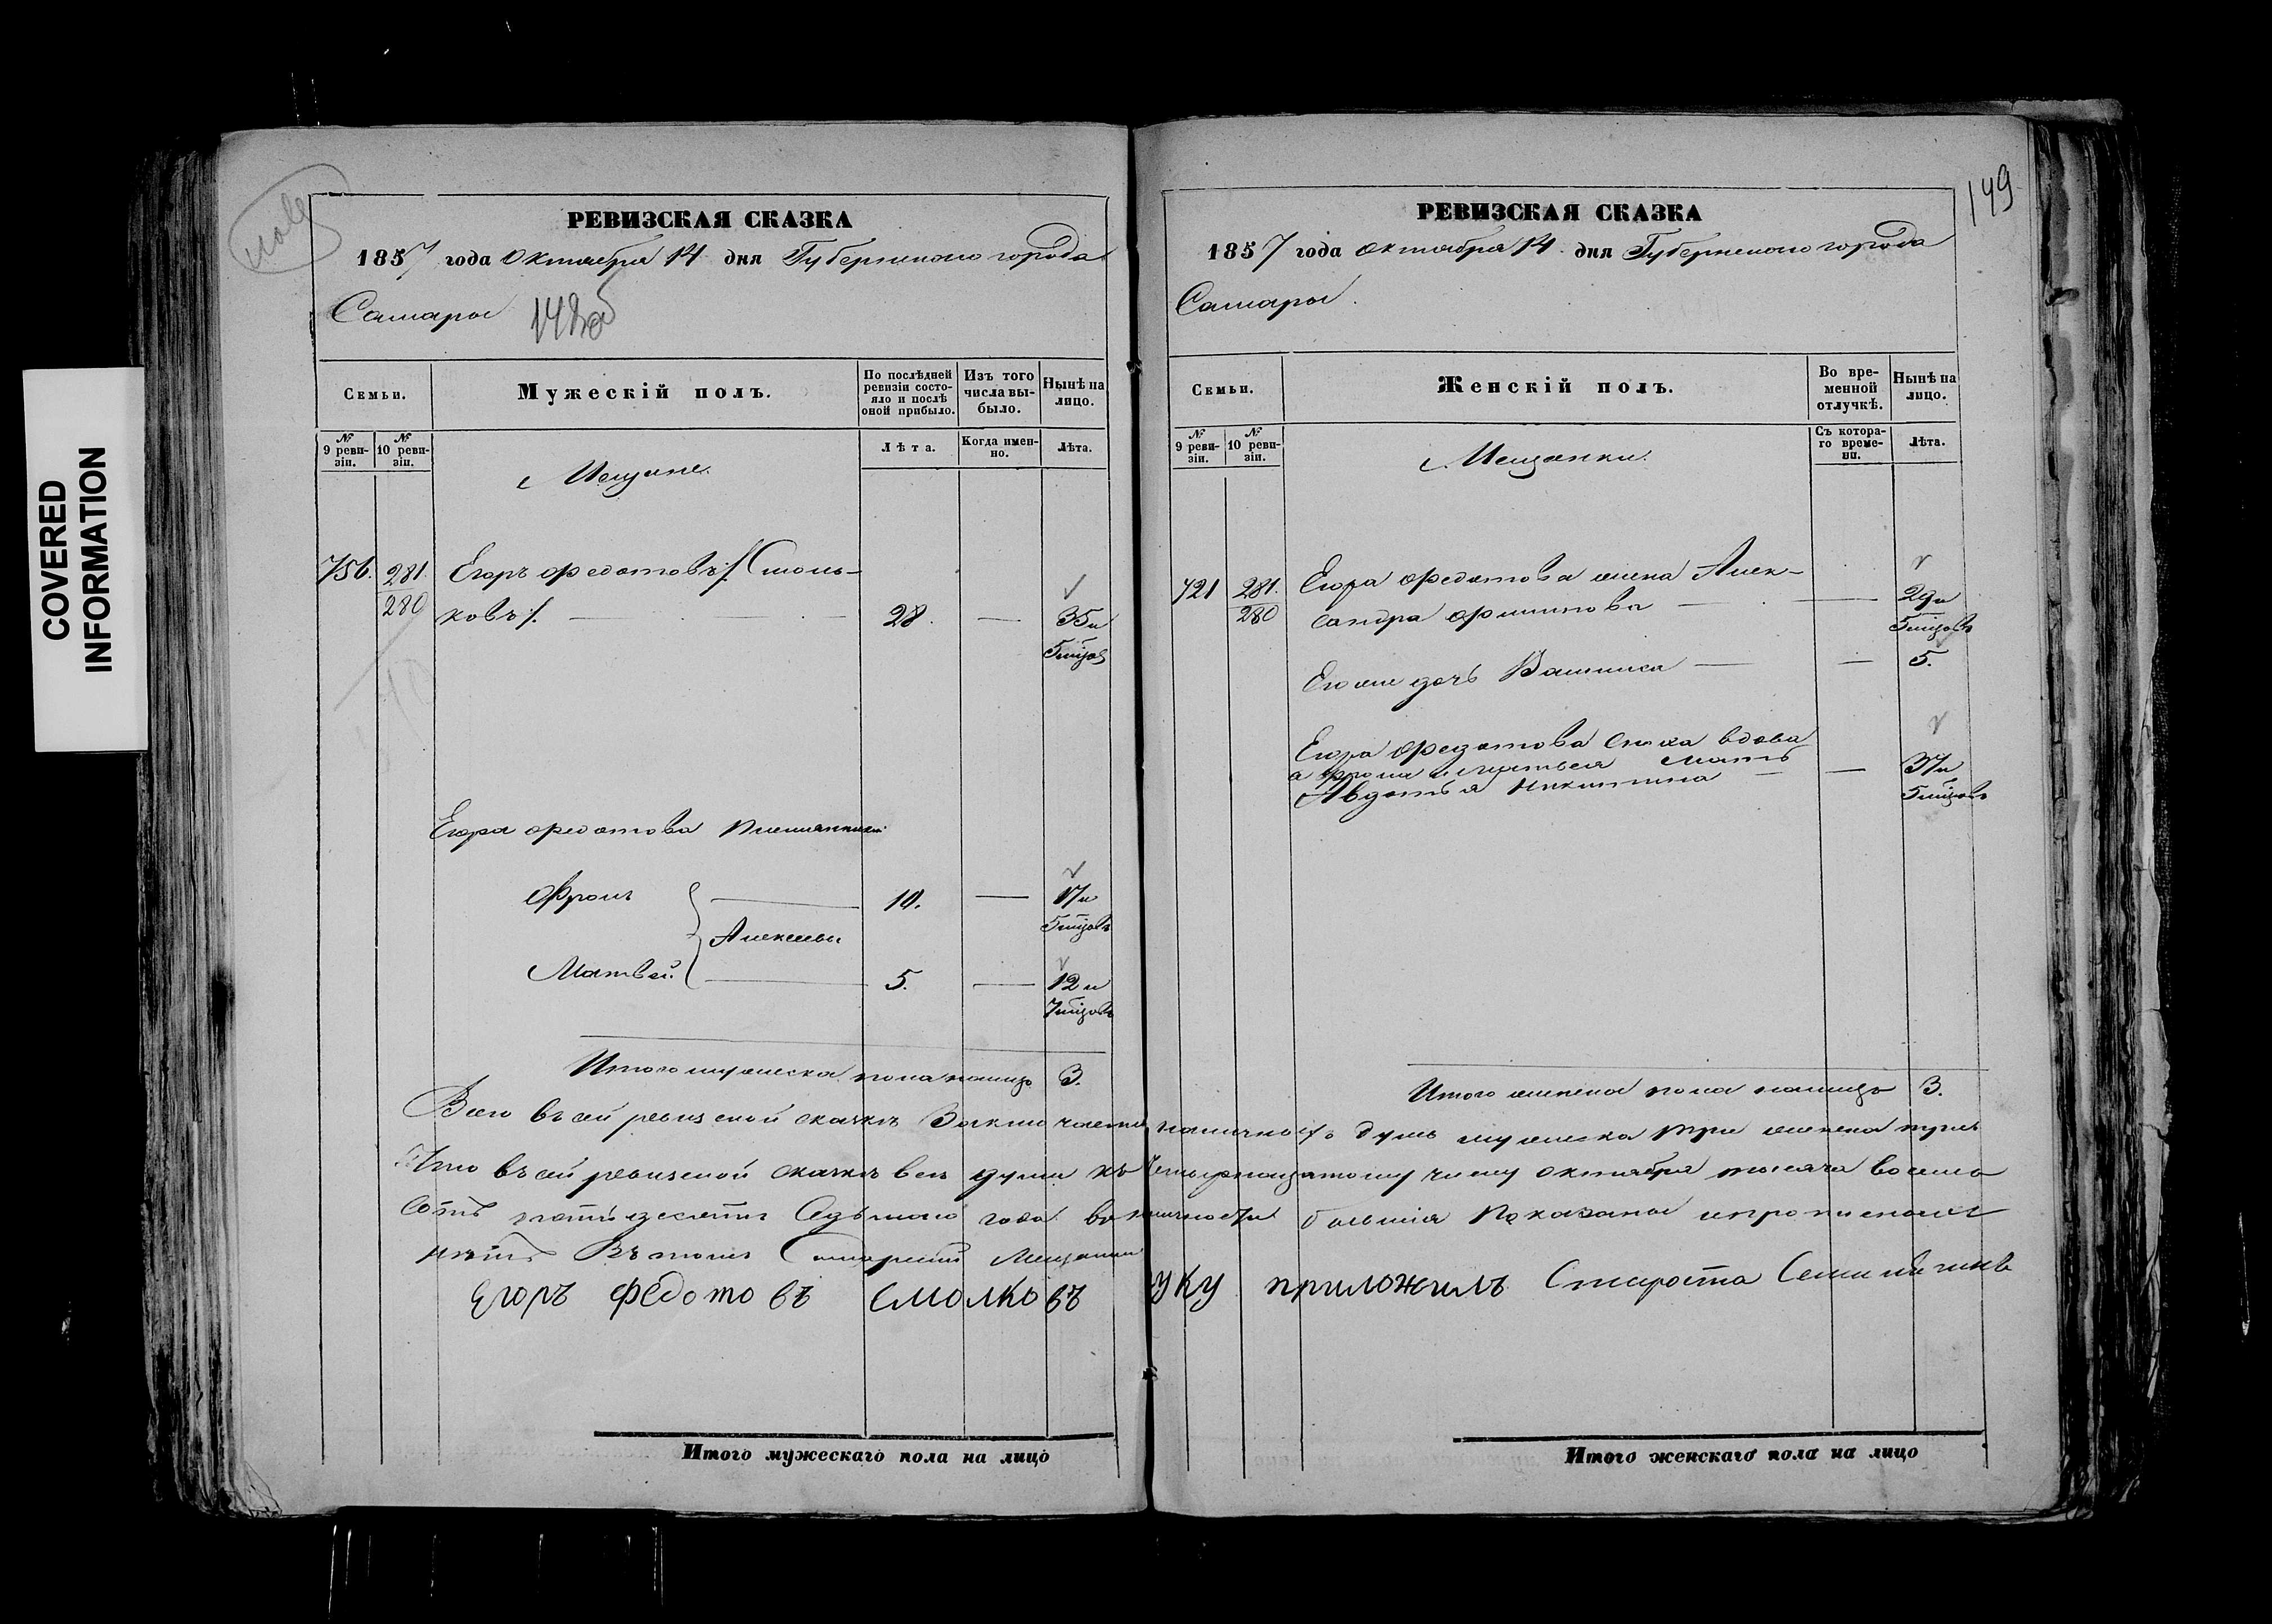 COVERED
INFORMATION
РЕВИЗСКАЯ СКАЗКА
1857 года Октября 14 дня Губернскаго города
Самары
Семьи.
Мужескій полъ.
По послѣдней ревизіи состояло и послѣ оной прибыло.
Изъ того числа выбыло.
Нынѣ на лицо.
№ 9 ревизіи.
№ 10 ревизіи.
Лѣта.
Когда именно.
Лѣта.
Мещане
756. 281. Егоръ Федотовъ /:Смоль-
280 ковъ:/. 28. 35 и
5 мѣцов
Егора Федотова племянники
Фролъ 10. 17 и
5 мѣцовъ
Алексеевы
Матвей 5. 12 и
7 мѣцовъ
Итого мужеска пола налицо 3.
РЕВИЗСКАЯ СКАЗКА
149
1857 года Октября 14 дня Губернскаго города
Самары
Семьи.
Женскій полъ.
Во временной отлучкѣ.
Нынѣ на лицо.
№ 9 ревизіи.
№ 10 ревизіи.
Съ котораго времени.
Лѣта.
Мещанки.
721 281. Егора Федотова жена Алек-
280 сандра Филипова 29 и
5 мѣцовъ
Его же дочь 5.
Егора Федотова вдова
а Фрола и Матвея мать
Авдотья Никитина 37 и
5 мѣцовъ
Итого женска пола налицо 3.
Всего въ сей ревизской сказкѣ заключается наличных душъ мужеска три женска три
Что въ сей ревизской сказкѣ все души къ четырнадцатому числу октября тысяча восемь
сотъ пятьдесятъ седьмаго года в наличности бывшія показаны и прописных
нѣтъ Въ томъ Самарский Мещанин
Егоръ Федотовъ Смолковъ руку приложилъ Староста
Итого мужескаго пола на лицо
Итого женскаго пола на лицо